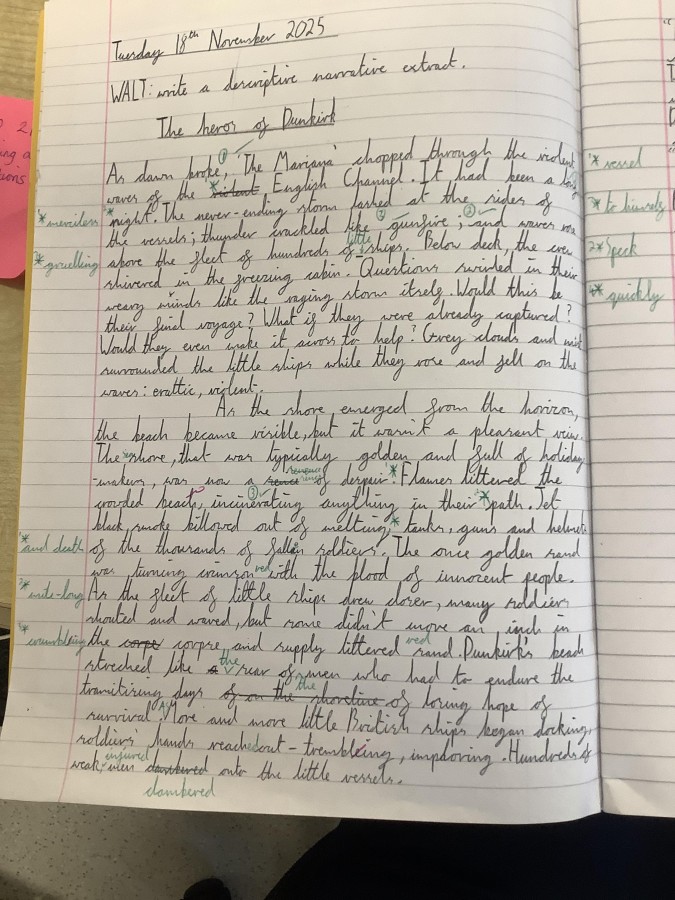 Tuesday 18th November 2025
WALT: write a descriptive narrative extract.
The heros of Dunkirk
As dawn broke, 'The Mariana' chopped through the violent
waves of the violent English Channel. It had been a long
night. The never-ending storm lashed at the sides of
the vessels; thunder crackled like gunfire; and waves rose
above the fleet of hundreds of little ships. Below deck, the crew
shivered in the freezing cabin. Questions swirled in their
weary minds like the raging storm itself. Would this be
their final voyage? What if they were already captured?
Would they even make it across to help? Grey clouds and mist
surrounded the little ships while they rose and fell on the
waves: erattic, violent.
As the shore emerged from the horizon,
the beach became visible, but it wasn't a pleasant view.
The shore, that was typically golden and full of holiday
-makers, was now a of despair. Flames littered the
crowded beach, incinerating anything in their path. Jet
black, smoke billowed out of melting, tanks, guns and helmets
of the thousands of fallen soldiers. The once golden sand
was turning crimson red with the blood of innocent people.
As the fleet of little ships drew closer, many soldiers
shouted and waved, but some didn't move an inch in
the corps corpse, and supply littered red sand. Dunkirk's beach
streched like a the of men who had to endure the
days of on the shoreline of the losing hope of
survival. As More and more little British ships began docking,
soldiers' hands reached out - trembleing, imploring. Hundreds of
weak, injured men onto the little vessels.
clambered
* merciless
* gruelling
* and death
* mile-long
* crumbling
1* vessel
* to himself
2* Speck
4* quickly